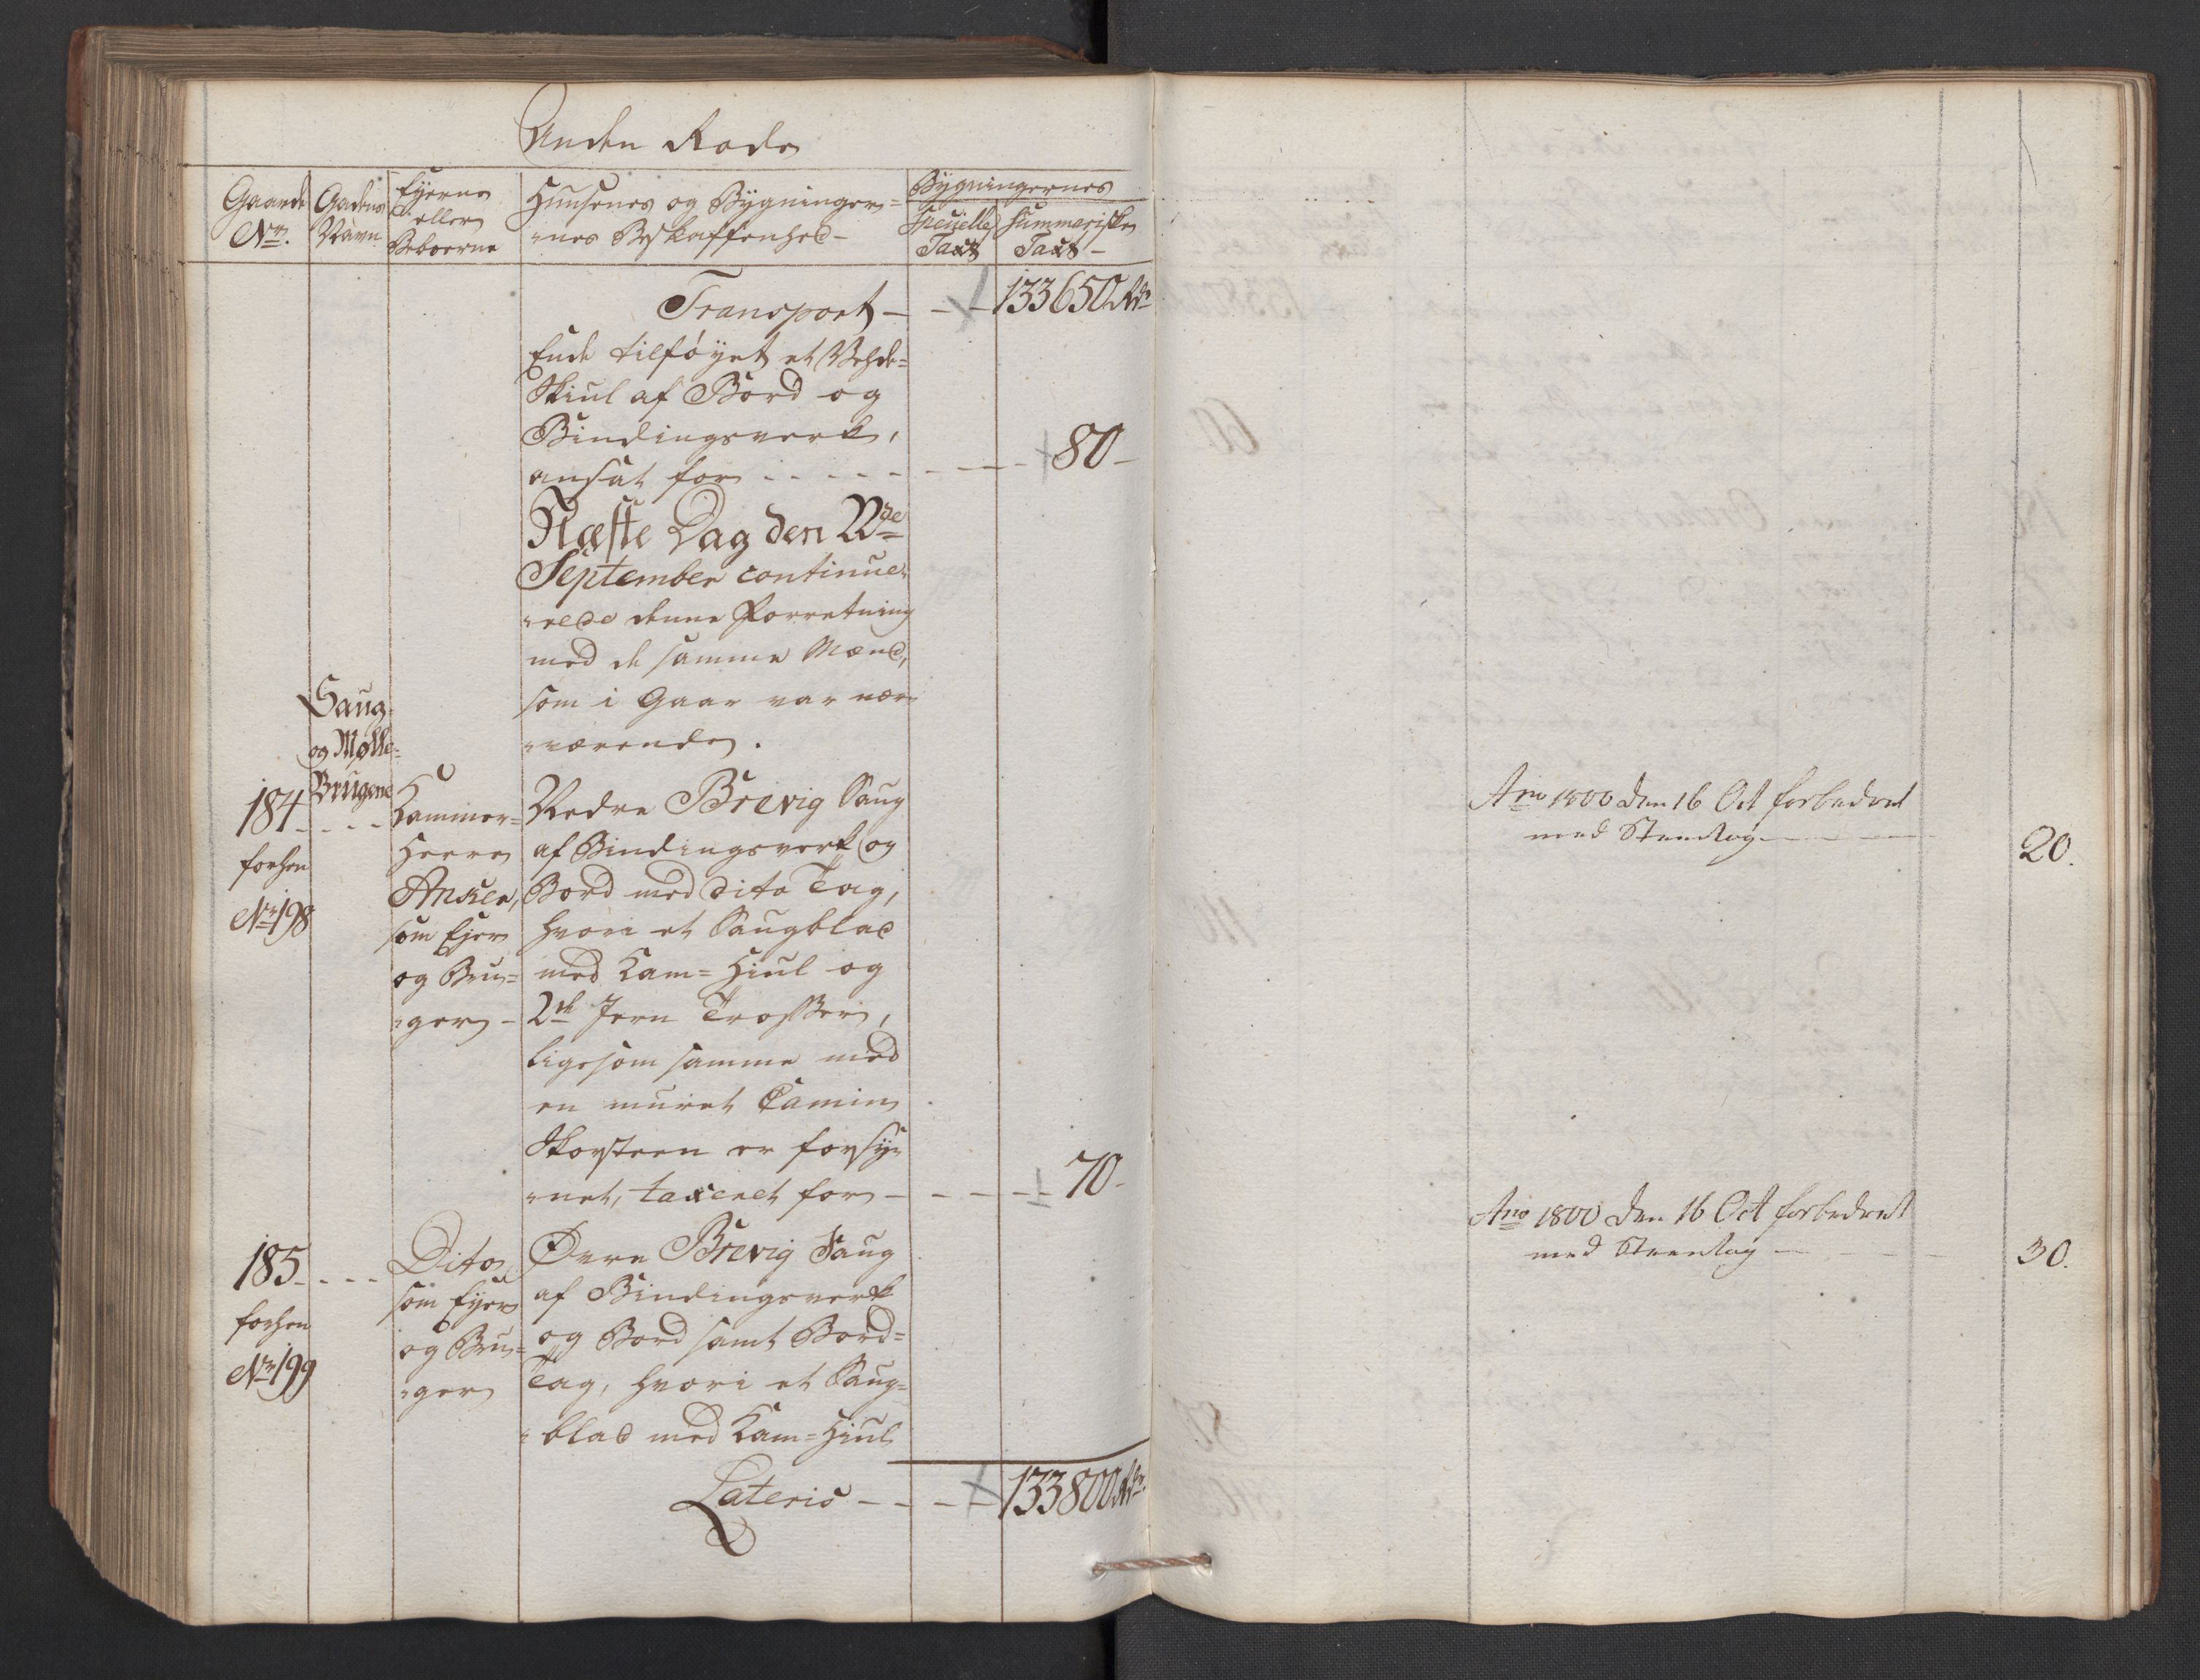 Anden Rode
Gaarde
No.
Gadens
Navn
Eyerne
eller
Beboerne
Huusenes og Bygninger=
nes Beskaffenhed-
Bygningernes
Specielle
Taxt
Summariske
Taxt-
Transport - - - 133650 Rdr
Ende tilføyet et Vehde=
Skiul af Bord og
Bindingsverk,
ansat for - - - - - 80-
Næste Dag den 22de
September continue=
rede denne Forretning
med de samme Mænd,
som i Gaar var nær=
værende.
Saug-
og Mølle=
Brugene
184
forhen
No 198
Kammer=
Herre
Anker,
som Ejer
og Bru=
ger -
Nedre Brevig Saug
af Bindingsverk og
Bord med dito Tag,
hvori et Saugblad
med Kam=Hiul og
2de Jern
ligesom samme med
en muret Camin
Skorsteen er forsÿ=
net, taxeret for - - - - 70-
185
forhen
No 199
Dito
som Eyer
og Bru=
ger
Øvre Brevig Saug
af Bindingsverk
og Bord samt Bord=
Tag, hvori et Saug=
blad med Kam=Hiul
Lateris - - - - 133800 Rdr.
Ano 1800 den 16 Oct forbedret
med Steentag - - - 20.
Ano 1800 den 16 Oct forbedret
med Steentag - - - 30.